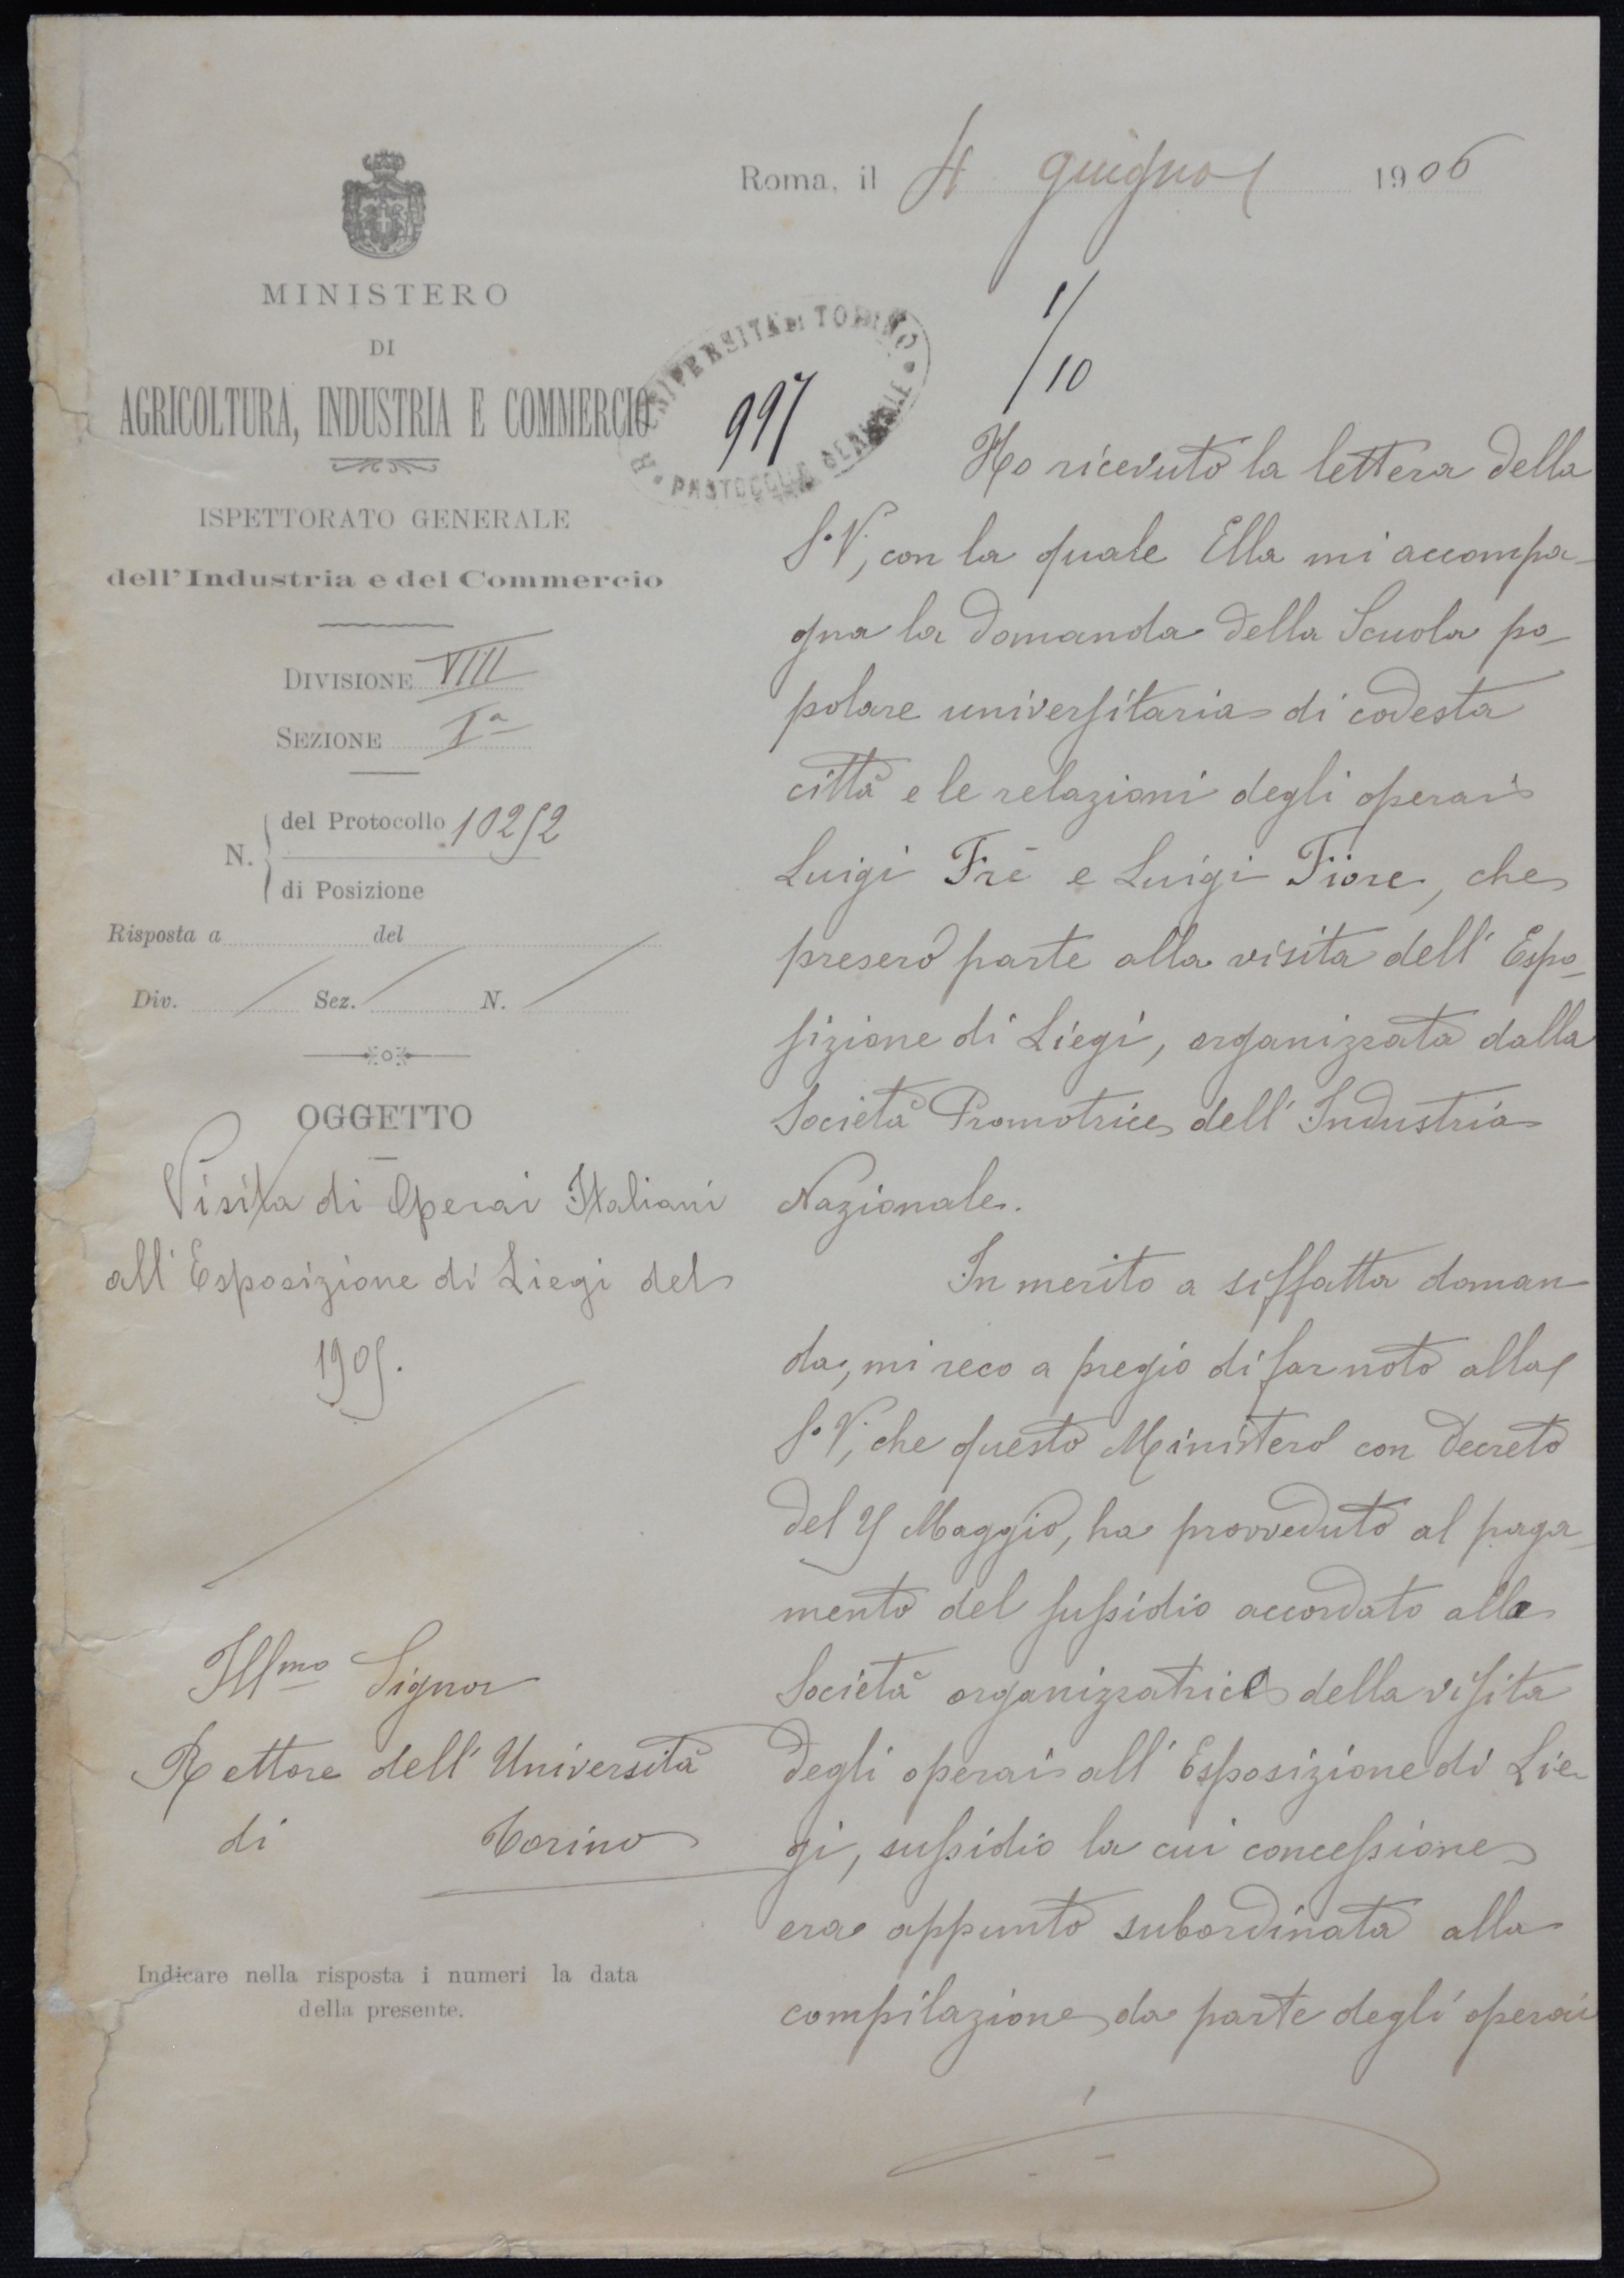 Roma, il 4 giugno 1906
MINISTERO
DI
AGRICOLTURA, INDUSTRIA E COMMERCIO
ISPETTORATO GENERALE
dell'Industria e del Commercio
DIVISIONE VIII
SEZIONE Iª
N. del Protocollo 10252
di Posizione
Risposta a del
Div. Sez. N.
OGGETTO
Visita di Operai Italiani
all'Esposizione di Liegi del
1905.
Ill.mo Signor
Rettore dell'Università
di Torino
Indicare nella risposta i numeri la data
della presente.
R. UNIVERSITÀ DI TORINO
997
PROTOCOLLO GENERALE
1/10
Ho ricevuto la lettera della
S.V, con la quale Ella mi accompa-
gna la domanda della Scuola po-
polare universitaria di codesta
città e le relazioni degli operai
Luigi Frè e Luigi Fiore, che
presero parte alla visita dell'Espo-
sizione di Liegi, organizzata dalla
Società Promotrice dell'Industria
Nazionale.
In merito a siffatta doman
da, mi reco a pregio di far noto alla
S.V, che questo Ministero con Decreto
del Maggio, ha provveduto al paga-
mento del sussidio accordato alla
Società organizzatrice della visita
degli operai all'Esposizione di Lie-
gi, sussidio la cui concessione
era appunto subordinata alla
compilazione da parte degli operai